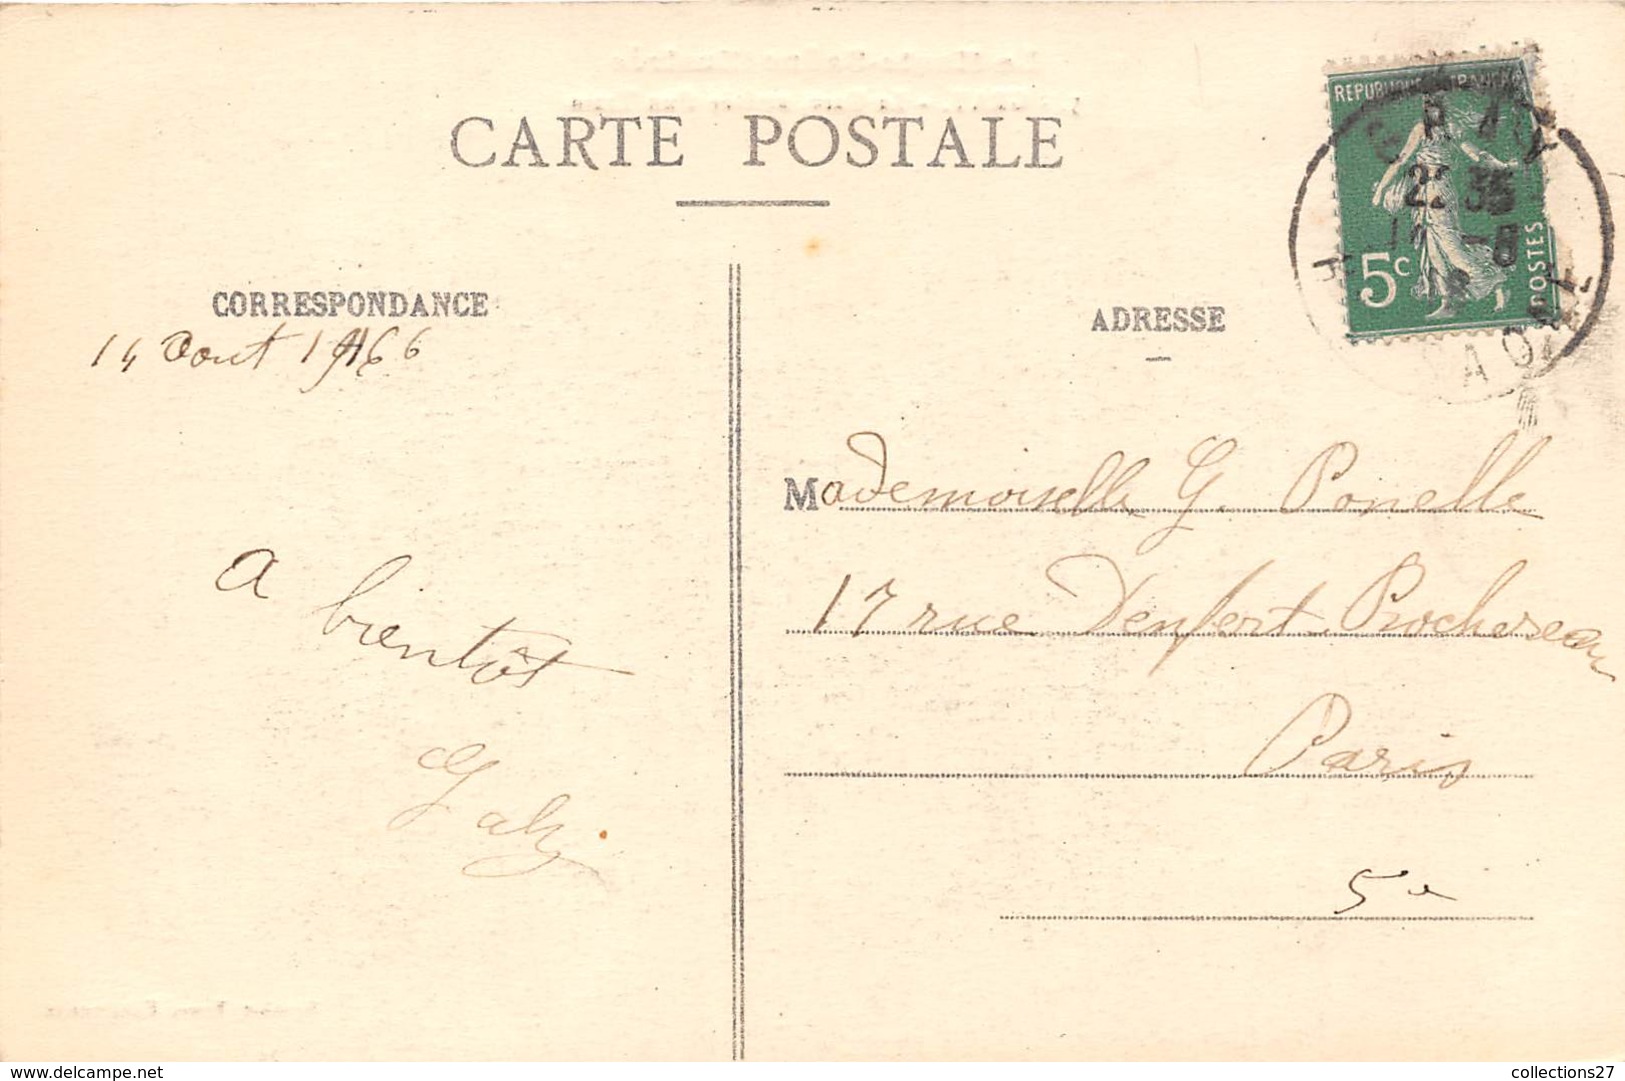 CARTE POSTALE
REPUBLIQUE FRANÇAISE
5c
POSTES
GRAY
22 35
CORRESPONDANCE
ADRESSE
14 Aout 1916
Mademoiselle G. Ponelle
17 rue Denfert Rochereau
Paris
5e
a bientôt
Gaby
collections27